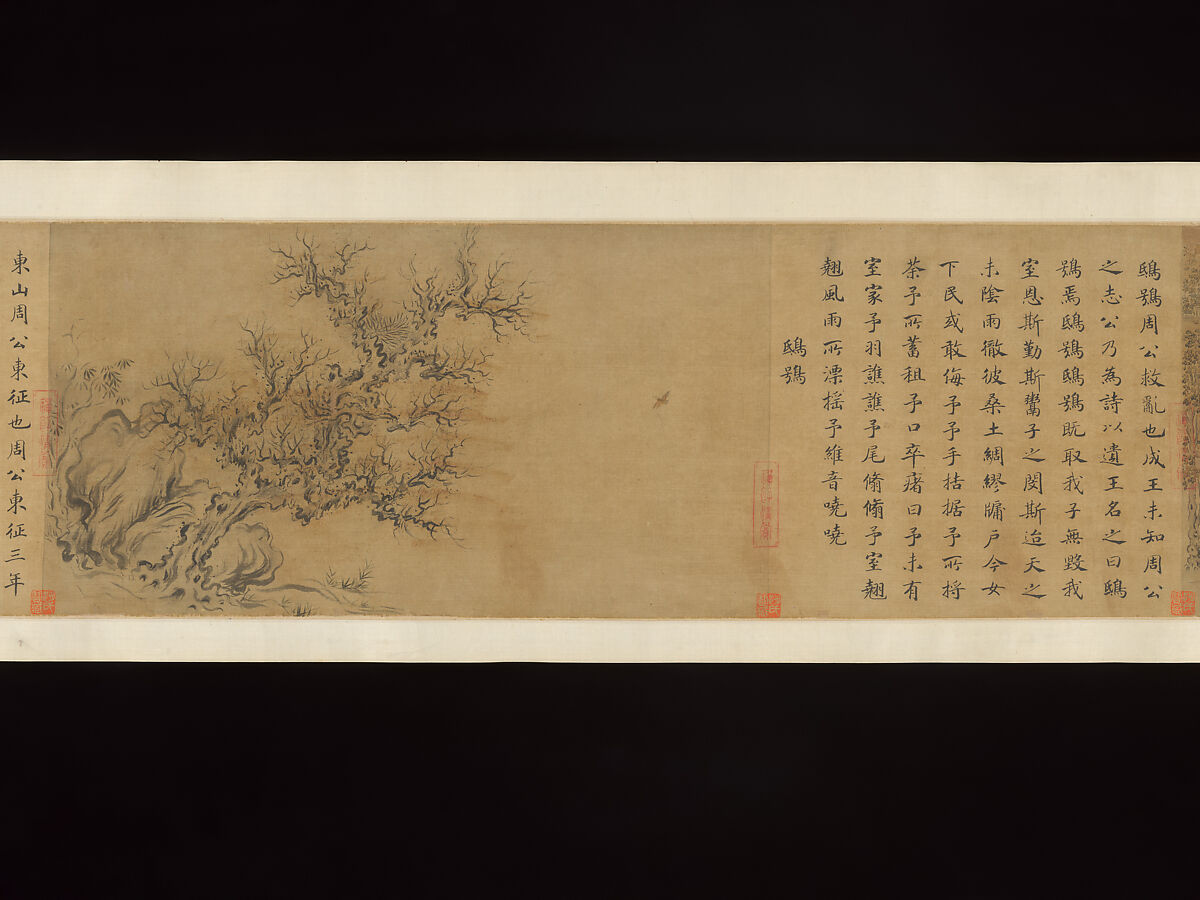 鴟鴞周公救亂也成王未知周公
之志公乃為詩以遺王名之曰鴟
鴞焉鴟鴞鴟鴞既取我子無毀我
室恩斯勤斯鬻子之閔斯迨天之
未陰雨徹彼桑土綢繆牖戶今女
下民或敢侮予予手拮据予所捋
荼予所蓄租予口卒瘏曰予未有
室家予羽譙譙予尾翛翛予室翹
翹風雨所漂搖予維音嘵嘵
鴟鴞
東山周公東征也周公東征三年